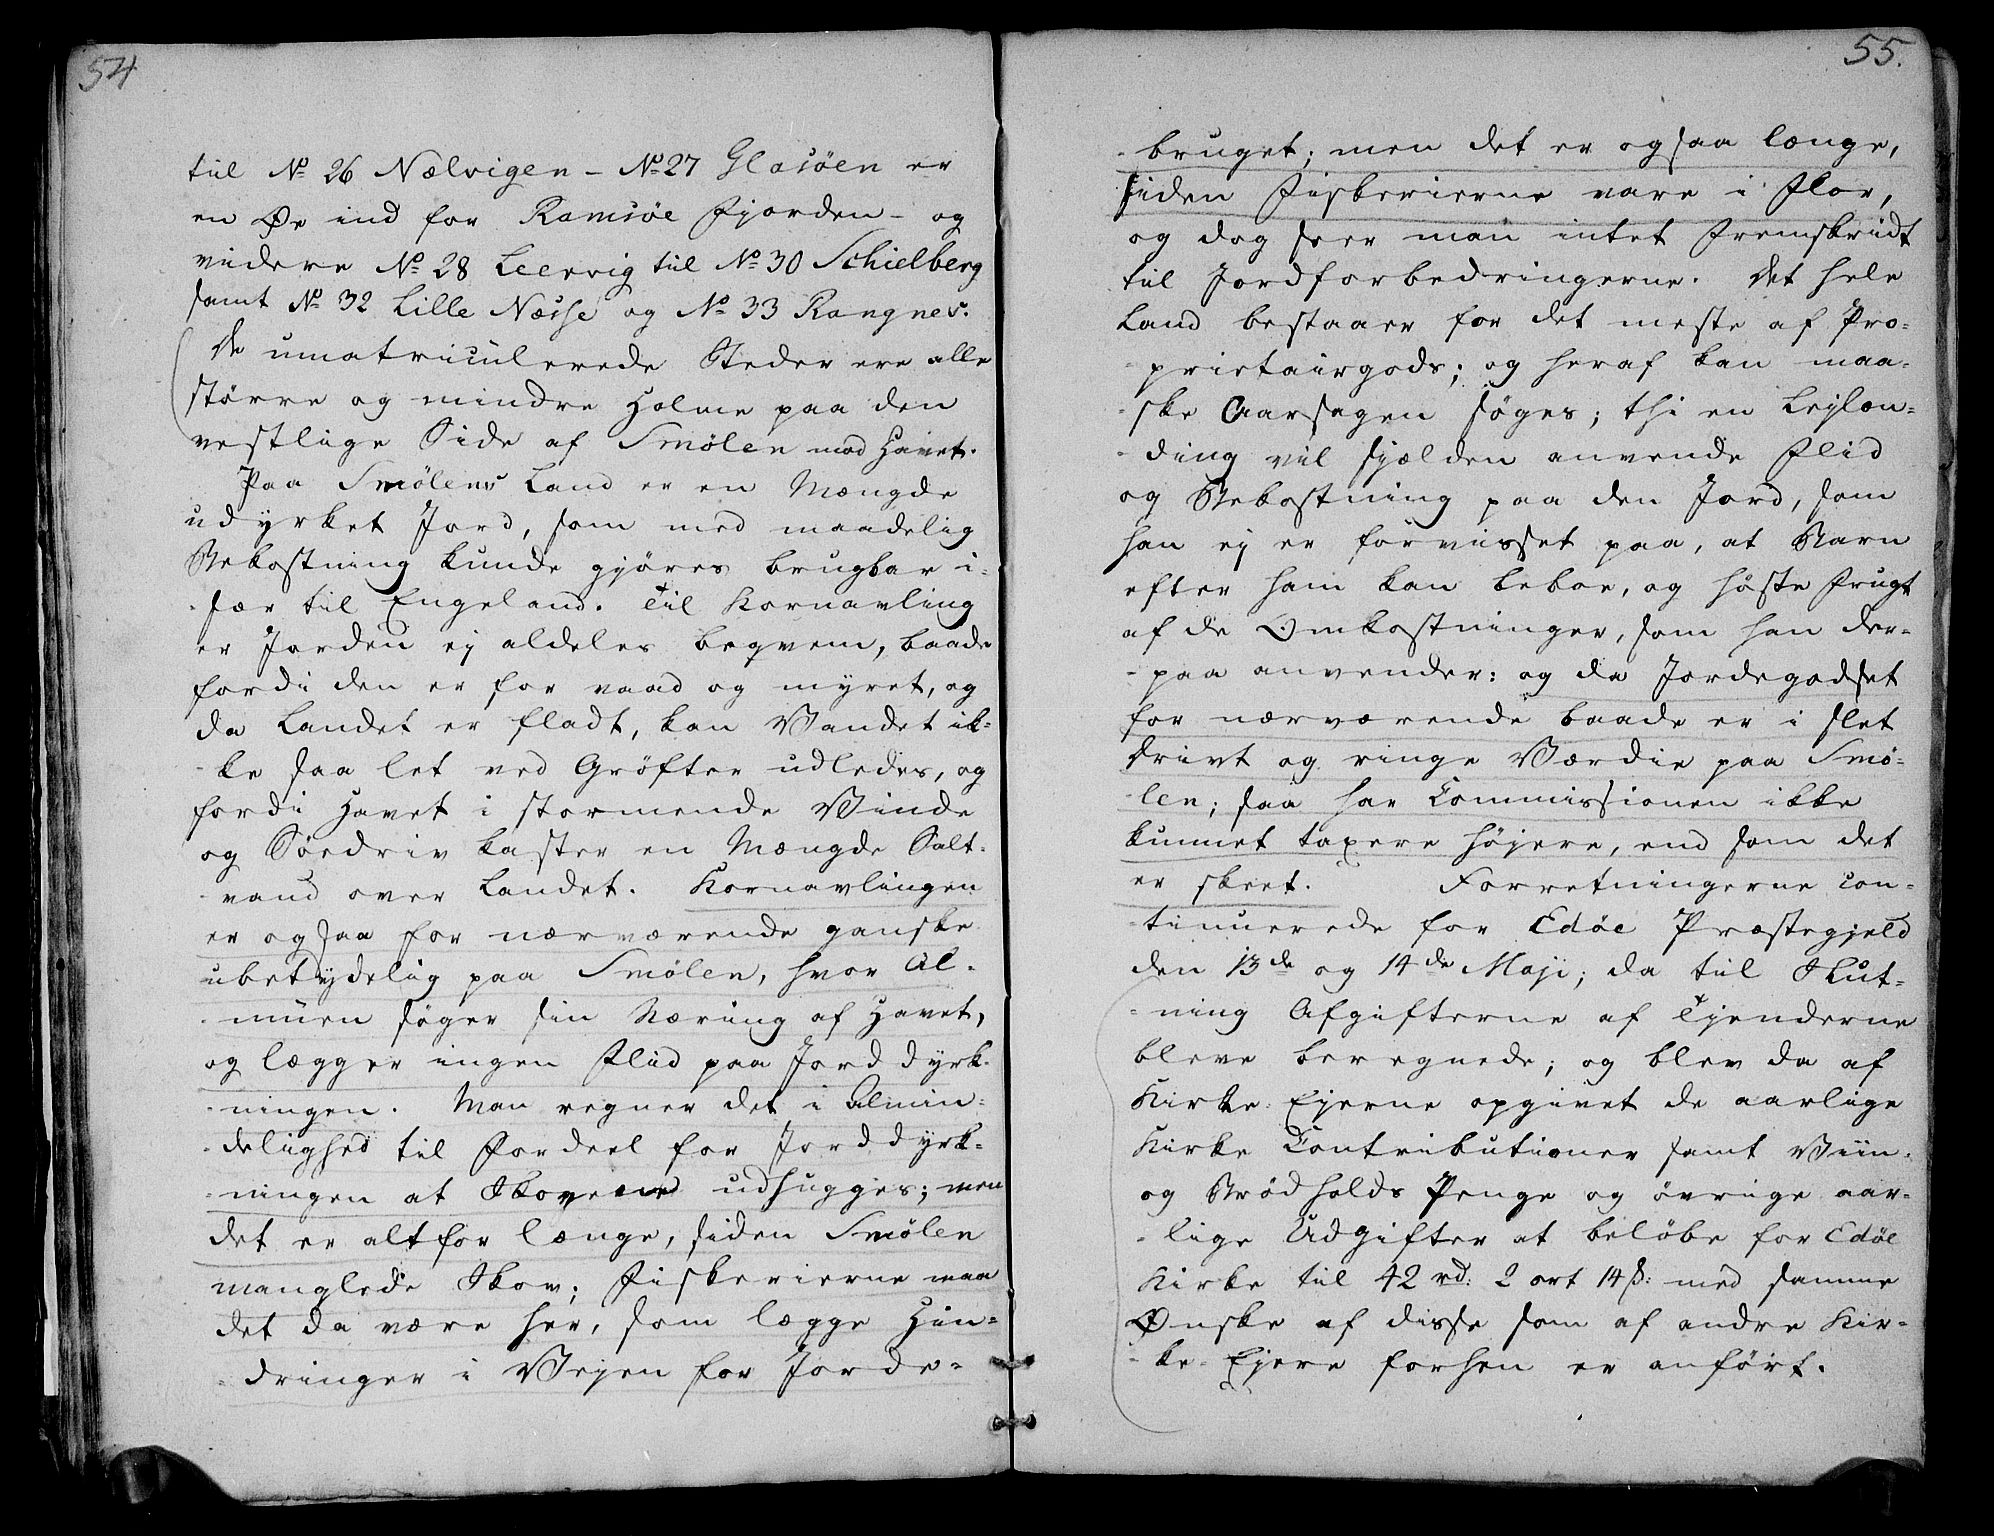 54
til No 26 Nælvigen - No 27 Glasöen er
en Øe ind for Ramsöe Fjorden - og
videre No 28 Leervig til No 30 Schielberg
samt No 32 Lille Næsse og No 33 Rangnes.
De umatriculerede Steder ere alle
större og mindre Holme paa den
vestlige Side af Smölen mod Havet.
Paa Smölens Land er en Mængde
udyrket Jord, som med maadelig
Bekostning kunde gjöres brugbar i-
-sær til Engeland. Til Kornavling
er Jorden ej aldeles beqvem, baade
fordi den er for vaad og myret, og
da Landet er fladt, kan Vandet ik-
-ke saa let ved Gröfter udledes, og
fordi Havet i stormende Vinde
og Söedriv kaster en Mængde Salt-
-vand over Landet. Kornavlingen
er ogsaa for nærværende ganske
ubetydelig paa Smölen, hvor Al-
-muen söger sin Næring af Havet,
og lægger ingen Flid paa Jorddyrk-
-ningen. Man regner det i Almin-
-delighed til Fordeel for Jorddyrk-
-ningen at Skovene udhugges; men
det er altfor længe, siden Smölen
manglede Skov; Fiskerierne maa
det da være her, som lægge Hin-
-dringer i Vejen for Jorde-
55.
-bruget; men det er ogsaa længe,
siden Fiskerierne vare i Flor,
og dog seer man intet Fremskridt
til Jordforbedringerne. Det hele
Land bestaaer for det meste af Pro-
-prietairgods; og heraf kan maa-
-ske Aarsagen söges; thi en Leylæn-
-ding vil sjælden anvende Flid
og Bekostning paa den Jord, som
han ej er forvisset paa, at Barn
efter ham kan beboe, og höste Frugt
af de Omkostninger, som han der-
-paa anvender: og da Jordegodset
for nærværende baade er i slet
drivt og ringe Værdie paa Smö-
-len; saa har Commissionen ikke
kunnet taxere höjere, end som det
er skeet. Forretningerne con-
-tinuerede for Edöe Præstegjeld
den 13de og 14de Maji; da til Slut-
-ning Afgifterne af Tjenderne
bleve beregnede; og blev da af
Kirke-Ejerne opgivet de aarlige
Kirke Contributioner samt Viin-
og Brödholds Penge og övrige aar-
-lige Udgifter at belöbe for Edöe
Kirke til 42 rd: 2 ort 14 ß: med samme
Ønske af disse som af andre Kir-
-ke-Ejere forhen er anfört.